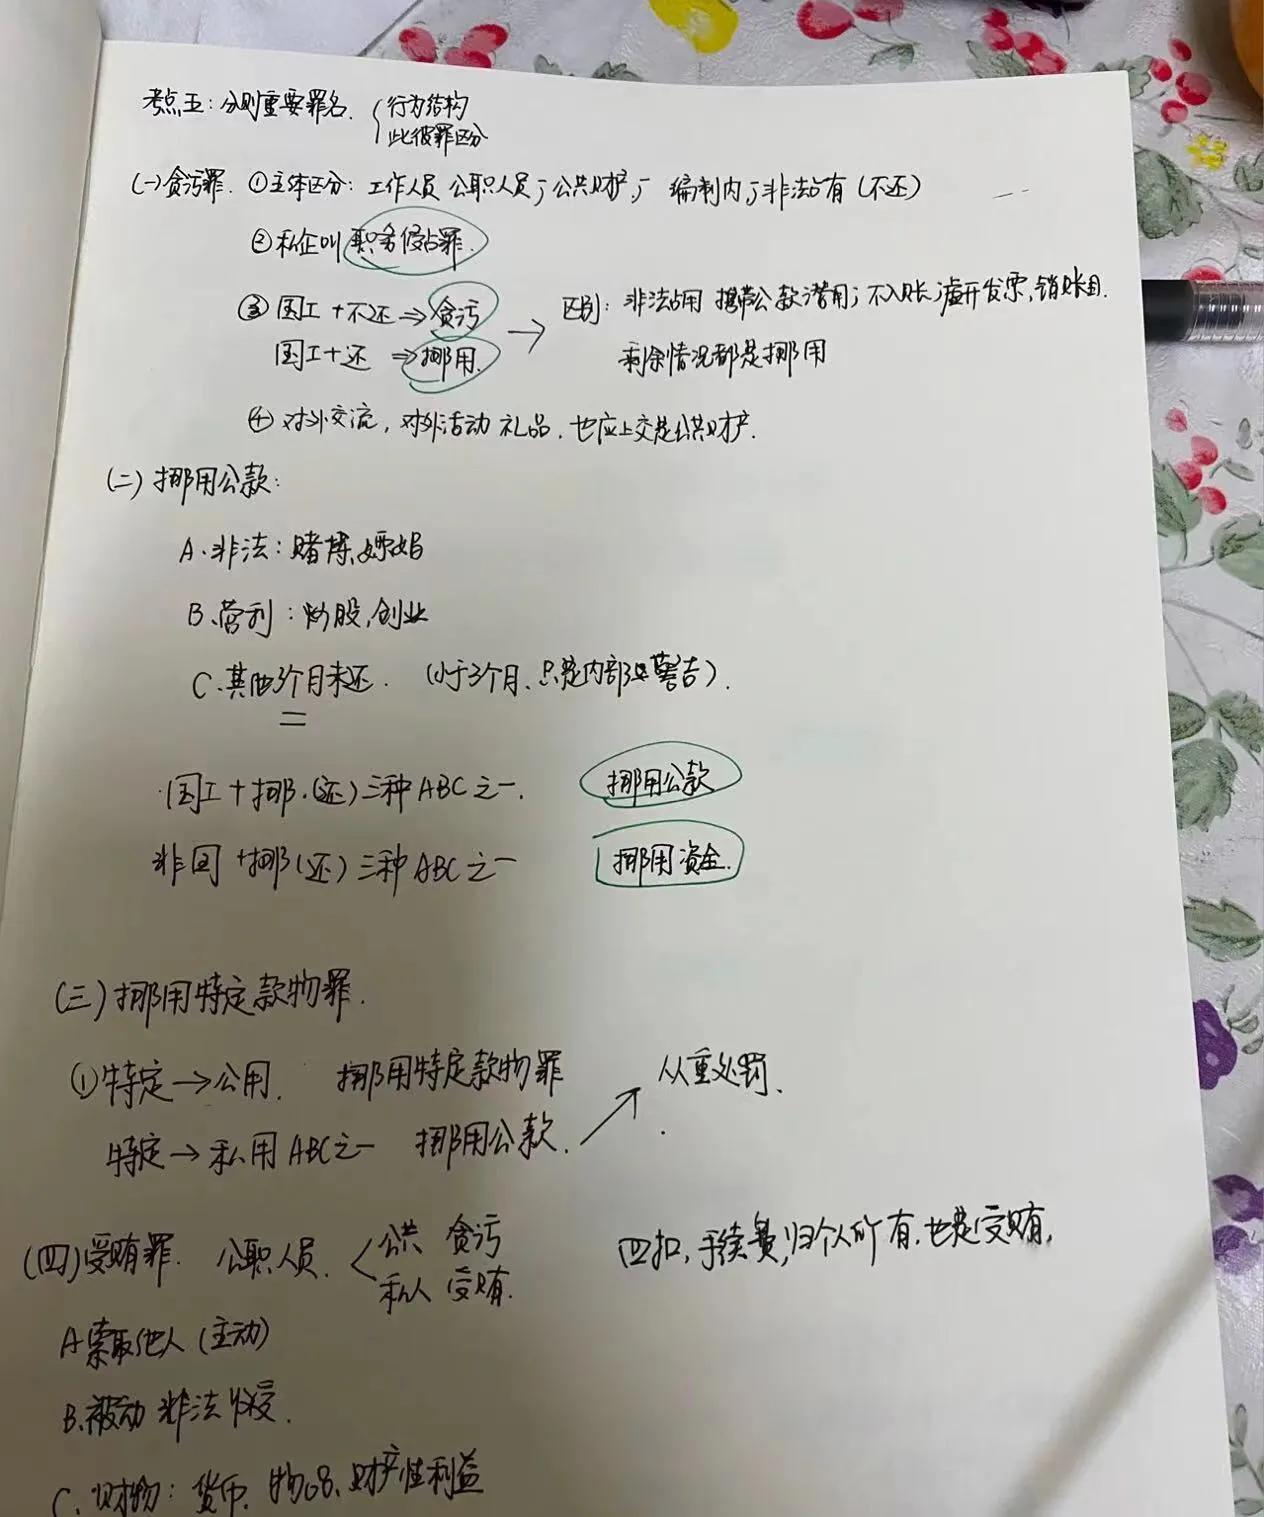 考点五：分则重要罪名. { 行为结构
此彼罪区分
(一)贪污罪. ①主体区分：工作人员 公职人员；公共财产； 编制内；非法占有（不还）
②私企叫 职务侵占罪.
③国工+不还⇒贪污
国工+还 ⇒挪用.
→ 区别：非法占用 携带公款潜用；不入账；虚开发票，销账目.
剩余情况都是挪用
④对外交流，对外活动 礼品. 也应上交是公共财产.
(二) 挪用公款：
A.非法：赌博、嫖娼
B、营利：炒股，创业
C、其他3个月未还. （小于3个月、只是内部 警告）.
国工+挪.（还）三种ABC之一. 挪用公款
非国 +挪（还）三种ABC之一 挪用资金.
(三)挪用特定款物罪.
①特定→公用. 挪用特定款物罪
特定→私用ABC之一 挪用公款. ↗ 从重处罚、
(四)受贿罪. 公职人员. < 公共 贪污
私人 受贿.
回扣，手续费，归个人所有.也是受贿，
A索取他人（主动）
B、被动 非法收受.
C、财物：货币、物品、财产性利益